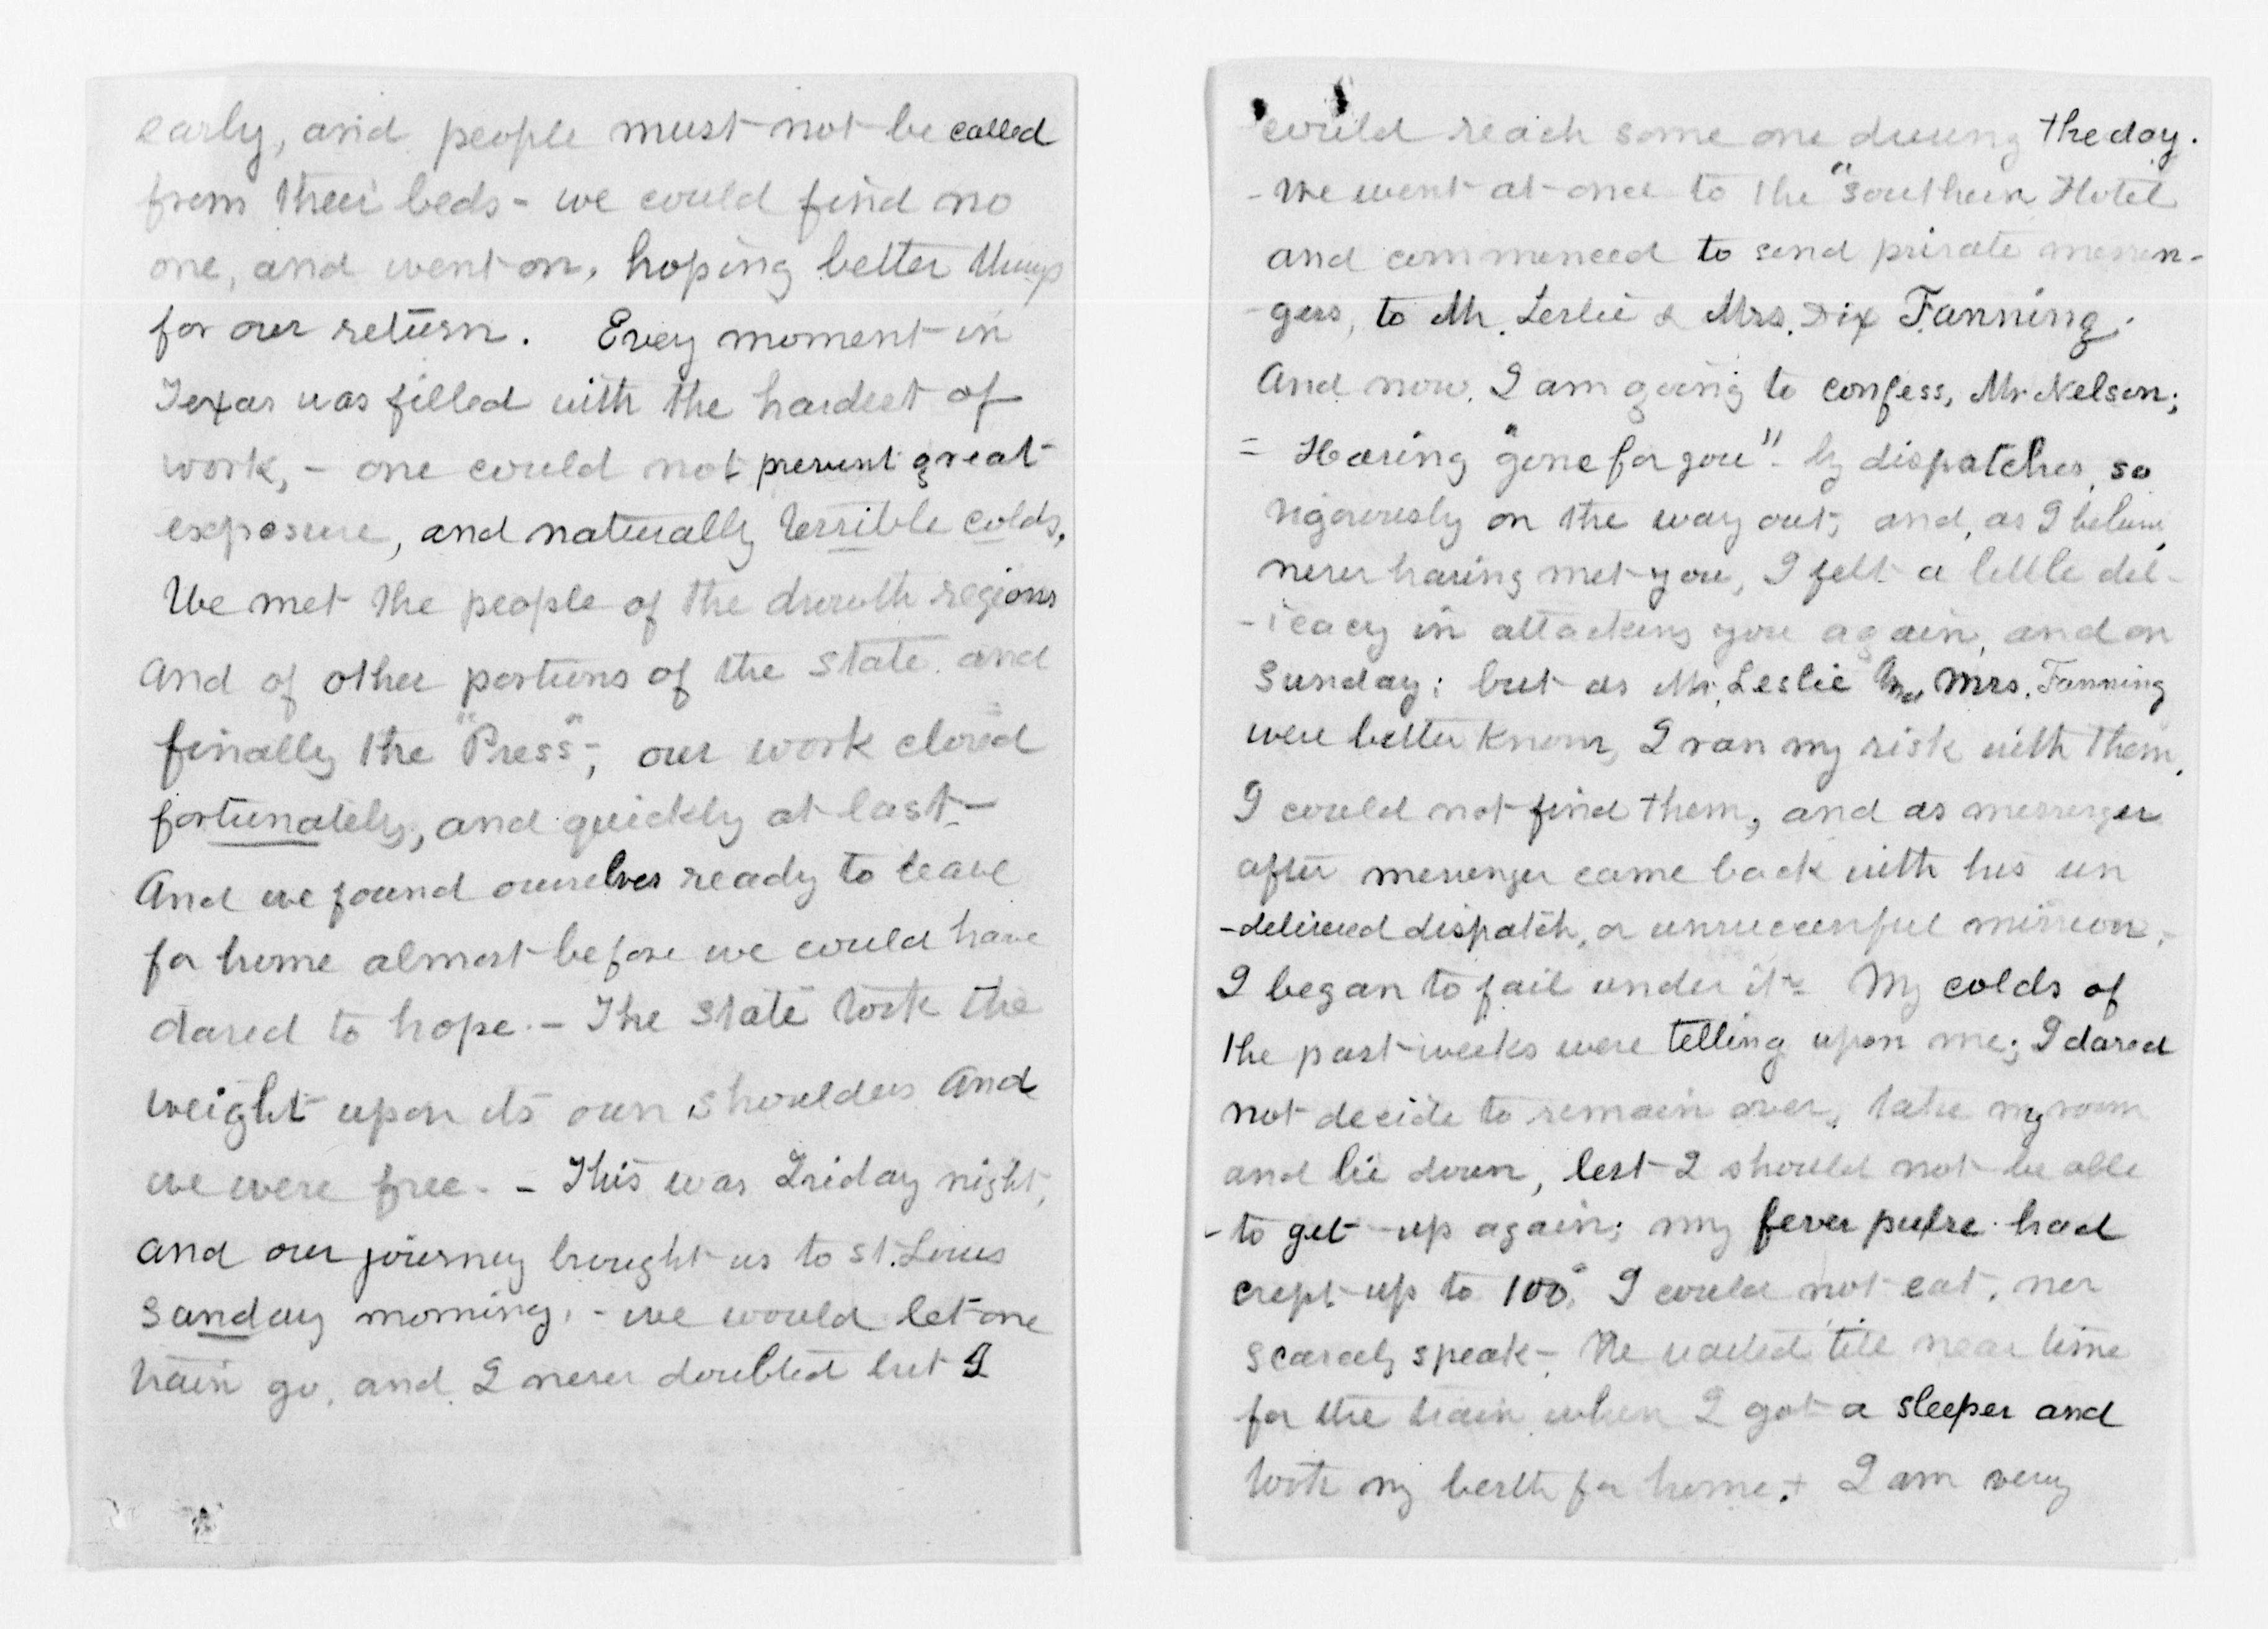 early, and people must not be called
from their beds - we could find no
one, and went on, hoping better things
for our return. Every moment in
Texas was filled with the hardest of
work, - one could not prevent great
exposure, and naturally terrible colds,
We met the people of the drouth regions
and of other portions of the state and
finally the "Press", our work closed
fortunately, and quickly at last -
And we found ourselves ready to leave
for home almost before we could have
dared to hope. - The state took the
weight upon its own shoulders and
we were free. - This was Friday night,
and our journey brought us to St. Louis
Sunday morning, - we would let one
train go, and I never doubted but I
could reach some one during the day.
- We went at once to the "Southern Hotel
and commenced to send private messen-
-gers, to Mr. Leslie & Mrs. Dix Fanning.
And now, I am going to confess, Mr. Nelson;
= Having "gone for you" - by dispatches, so
vigorously on the way out, and, as I believe,
never having met you, I felt a little del-
-icacy in attacking you again, and on
Sunday; but as Mr. Leslie Mrs. Fanning
were better known, I ran my risk with them.
I could not find them, and as messenger
after messenger came back with his un
-delivered dispatch, or unsuccessful mission, -
I began to fail under it - My colds of
the past weeks were telling upon me; I dared
not decide to remain over, take my room
and lie down, lest I should not be able
- to get up again; my fever pulse had
crept up to 100°. I could not eat, nor
scarcely speak - We waited till near time
for the train when I got a sleeper and
took my berth for home. + I am very